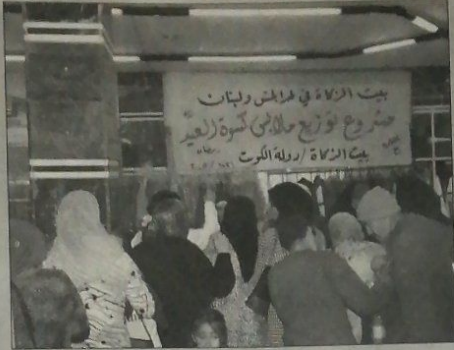 بيت الزكاة في طرابلس ولبنان
مشروع توزيع ملابس كسوة العيد
بيت الزكاة / دولة الكويت
رمضان